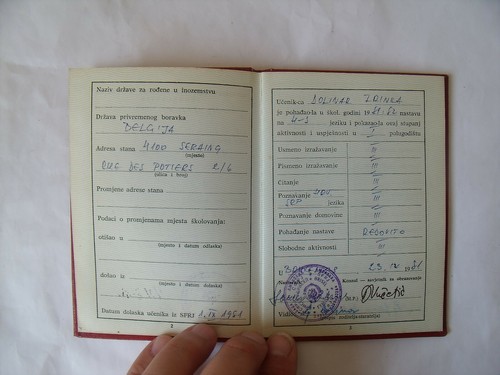 Naziv države za rođene u inozemstvu
Država privremenog boravka
BELGIJA
Adresa stana 4100 SERAING
(mjesto)
RUE DES POTIERS 2/6
(ulica i broj)
Promjene adrese stana
Podaci o promjenama mjesta školovanja:
otišao u
(mjesto i datum odlaska)
došao iz
(mjesto i datum dolaska)
Datum dolaska učenika iz SFRJ 1. IX 1981
2
Učenik-ca DOLINAR ZRINKA
je pohađao/la u škol. godini 1981/82 nastavu
na jeziku i pokazao/la ovaj stupanj
aktivnosti i uspješnosti u I polugodištu
Usmeno izražavanje III
Pismeno izražavanje III
Čitanje III
Poznavanje
jezika III
Poznavanje domovine III
Pohađanje nastave REDOVITO
Slobodne aktivnosti III
U 23. 1981.
Nastavnik Konzul — savjetnik za obrazovanje
3